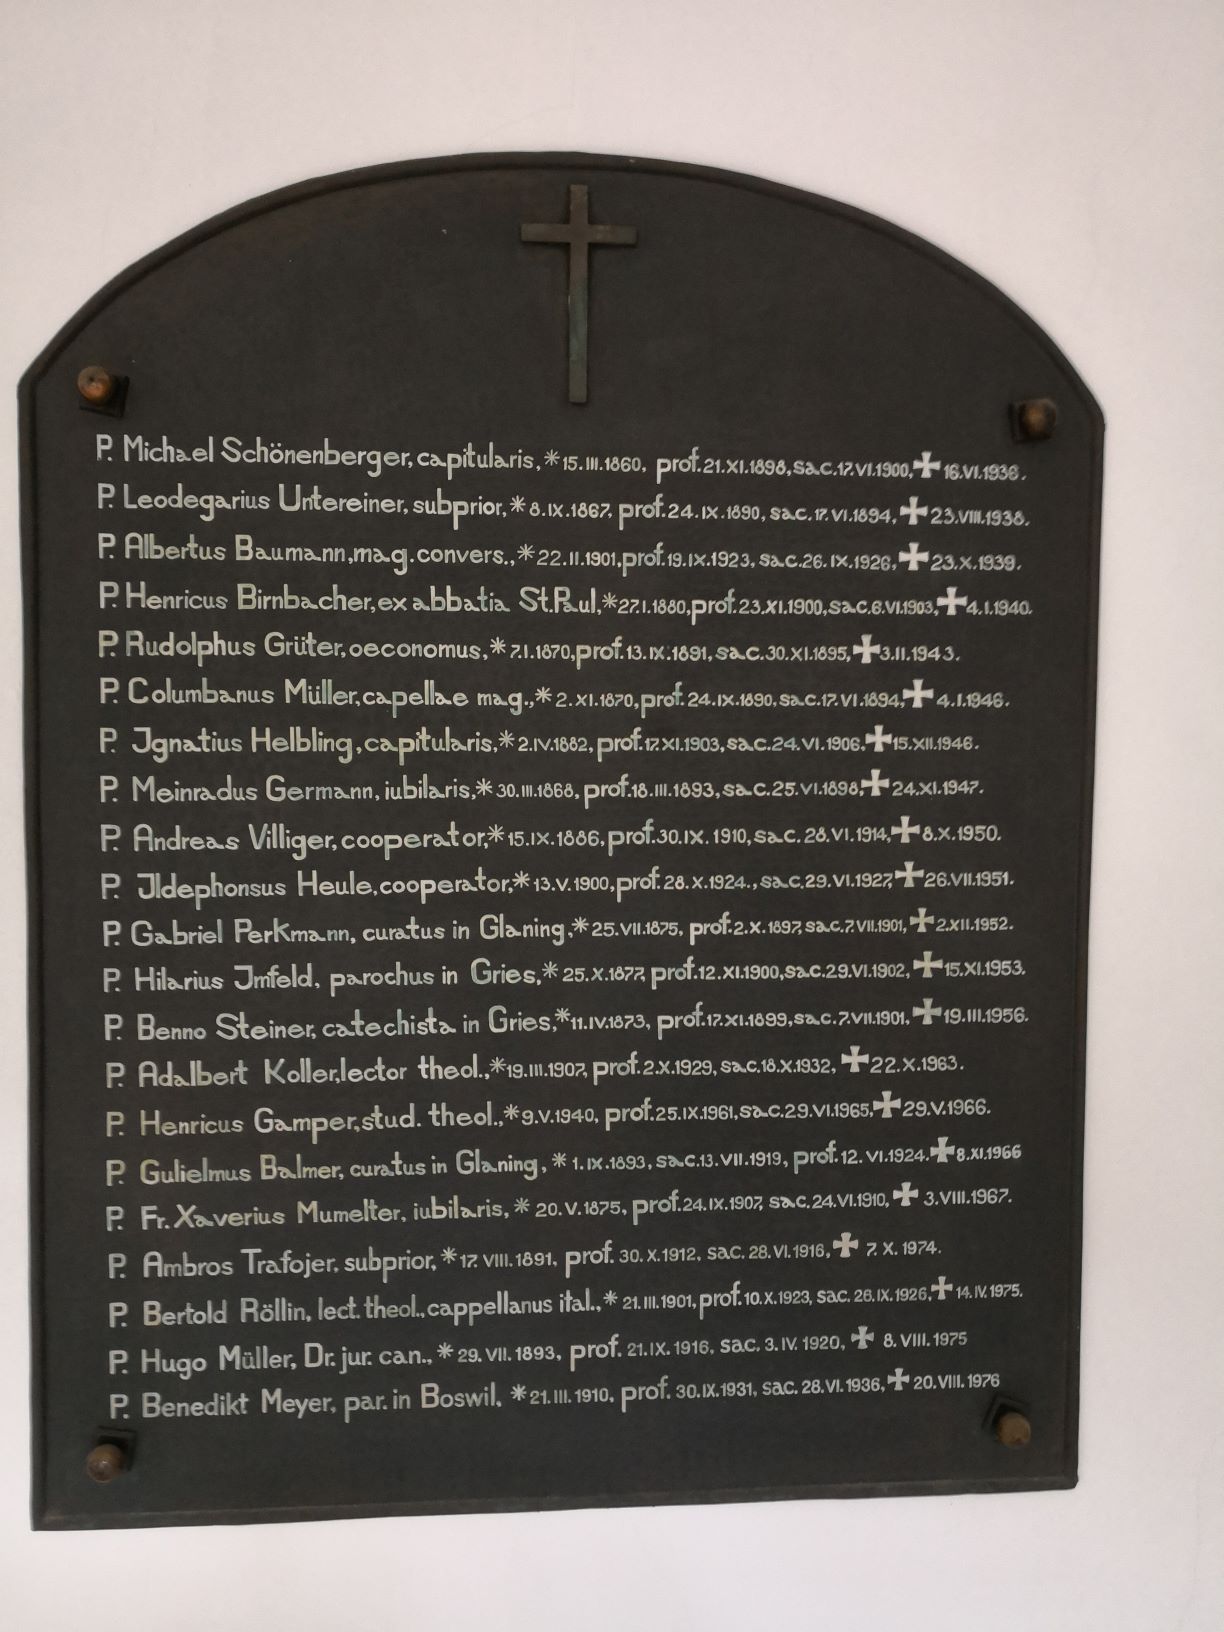 P. Michael Schönenberger, capitularis, * 15. III. 1860, prof. 21. XI. 1898, sac. 17. VI. 1900, ✠ 16. VI. 1936.
P. Leodegarius Untereiner, subprior, * 8. IX. 1867, prof. 24. IX. 1890, sac. 17. VI. 1894, ✠ 23. VIII. 1938.
P. Albertus Baumann, mag. convers., * 22. II. 1901, prof. 19. IX. 1923, sac. 26. IX. 1926, ✠ 23. X. 1939.
P. Henricus Birnbacher, ex abbatia St. Paul, * 27. I. 1880, prof. 23. XI. 1900, sac. 6. VI. 1903, ✠ 4. I. 1940.
P. Rudolphus Grüter, oeconomus, * 7. I. 1870, prof. 13. IX. 1891, sac. 30. XI. 1895, ✠ 3. II. 1943.
P. Columbanus Müller, capellae mag., * 2. XI. 1870, prof. 24. IX. 1890, sac. 17. VI. 1894, ✠ 4. I. 1946.
P. Jgnatius Helbling, capitularis, * 2. IV. 1882, prof. 17. XI. 1903, sac. 24. VI. 1906, ✠ 15. XII. 1946.
P. Meinradus Germann, iubilaris, * 30. III. 1868, prof. 18. III. 1893, sac. 25. VI. 1898, ✠ 24. XI. 1947.
P. Andreas Villiger, cooperator, * 15. IX. 1886, prof. 30. IX. 1910, sac. 28. VI. 1914, ✠ 8. X. 1950.
P. Jldephonsus Heule, cooperator, * 13. V. 1900, prof. 28. X. 1924., sac. 29. VI. 1927, ✠ 26. VII. 1951.
P. Gabriel Perkmann, curatus in Glaning, * 25. VII. 1875, prof. 2. X. 1897, sac. 7. VII. 1901, ✠ 2. XII. 1952.
P. Hilarius Jmfeld, parochus in Gries, * 25. X. 1877, prof. 12. XI. 1900, sac. 29. VI. 1902, ✠ 15. XI. 1953.
P. Benno Steiner, catechista in Gries, * 11. IV. 1873, prof. 17. XI. 1899, sac. 7. VII. 1901, ✠ 19. III. 1956.
P. Adalbert Koller, lector theol., * 19. III. 1907, prof. 2. X. 1929, sac. 18. X. 1932, ✠ 22. X. 1963.
P. Henricus Gamper, stud. theol., * 9. V. 1940, prof. 25. IX. 1961, sac. 29. VI. 1965, ✠ 29. V. 1966.
P. Gulielmus Balmer, curatus in Glaning, * 1. IX. 1893, sac. 13. VII. 1919, prof. 12. VI. 1924. ✠ 8. XI. 1966
P. Fr. Xaverius Mumelter, iubilaris, * 20. V. 1875, prof. 24. IX. 1907, sac. 24. VI. 1910, ✠ 3. VIII. 1967.
P. Ambros Trafojer, subprior, * 17. VIII. 1891, prof. 30. X. 1912, sac. 28. VI. 1916, ✠ 7. X. 1974.
P. Bertold Röllin, lect. theol., cappellanus ital., * 21. III. 1901, prof. 10. X. 1923, sac. 26. IX. 1926, ✠ 14. IV. 1975.
P. Hugo Müller, Dr. jur. can., * 29. VII. 1893, prof. 21. IX. 1916, sac. 3. IV. 1920, ✠ 8. VIII. 1975
P. Benedikt Meyer, par. in Boswil, * 21. III. 1910, prof. 30. IX. 1931, sac. 28. VI. 1936, ✠ 20. VIII. 1976